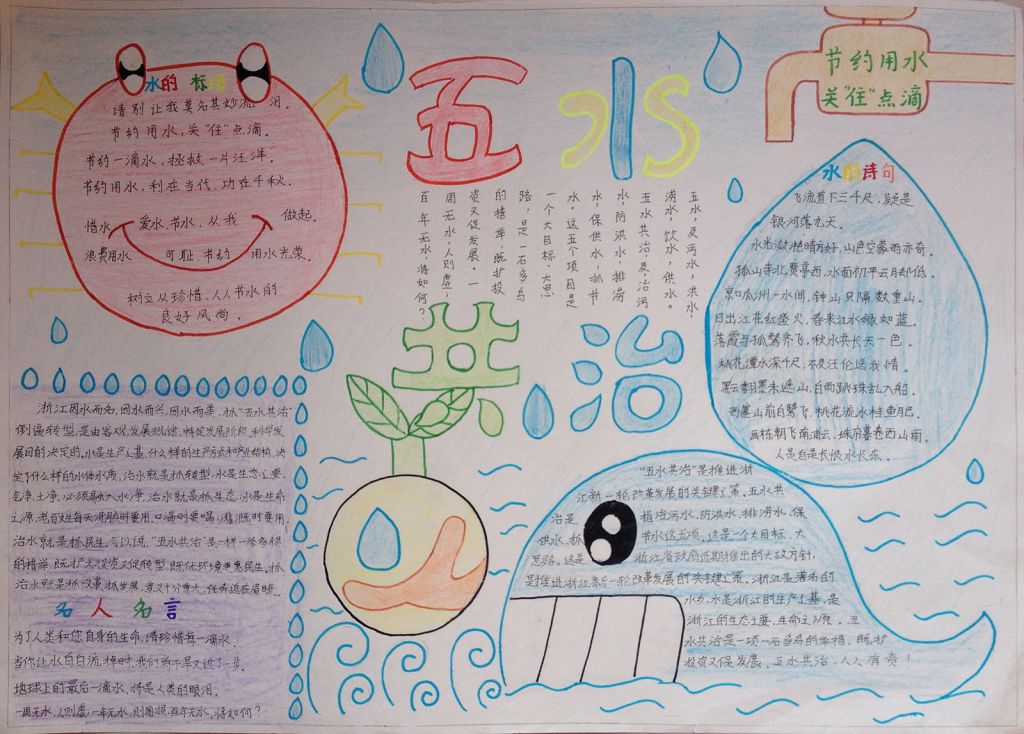 五水共治
节约用水
关“住”点滴
水的标语
请别让我莫名其妙流泪。
节约用水,关“住”点滴。
节约一滴水,拯救一片汪洋。
节约用水,利在当代,功在千秋。
惜水、爱水、节水,从我做起。
浪费用水可耻,节约用水光荣。
树立从珍惜、人人节水的
良好风尚。
五水,及污水,洪水,
涝水,饮水,供水。
五水共治,及,治污
水,防洪水,排涝
水,保供水,抓节
水。这五个项目是
一个大目标、大思
路,是一石多鸟
的措举,既扩投
资又促发展。一
周无水,人则虚,
百年无水,将如何?
水的诗句
飞流直下三千尺,疑是
银河落九天。
水光潋滟晴方好,山色空蒙雨亦奇。
孤山寺北贾亭西,水面初平云脚低。
京口瓜洲一水间,钟山只隔数重山。
日出江花红盛火,春来江水绿如蓝。
落霞与孤鹜齐飞,秋水共长天一色。
桃花潭水深千尺,不及汪伦送我情。
黑云翻墨未遮山,白雨跳珠乱入船。
西塞山前白鹭飞,桃花流水鳜鱼肥。
画栋朝飞南浦云,珠帘暮卷西山雨。
人生自是长恨水长东。
浙江因水而名,因水而兴,因水而美,抓“五水共治”
倒逼转型,是由客观发展规律、特定发展阶段、科学发
展目的决定的,水是生产之基,什么样的生产方式和产业结构,决
定了什么样的水体水质,治水就是抓转型,水是生态之要,
气净、土净,必须融入水净,治水就是抓生态,水是生命
之源,老百姓每天洗脸时要用、口渴时要喝、灌溉时要用,
治水就是抓民生。可以说,“五水共治”是一样一举多得
的措举,既扩大投资又促转型,既优环境更惠民生,抓
治水就是抓改革、抓发展,意义十分重大、任务迫在眉睫。
名人名言
为了人类和您自身的生命,请珍惜每一滴水。
当你让水白白流掉时,我们离干旱又近了一步。
地球上的最后一滴水,将是人类的眼泪。
一周无水,人则虚,一年无水,则周损,百年无水,将如何?
“五水共治”是推进浙
江新一轮改革发展的关键之策。五水共
治是指治污水、防洪水、排涝水、保
供水、抓节水这五项,这是一个大目标、大
思路,这是浙江省政府近期推出的大政方针,
是推进浙江新一轮改革发展的关键之策。浙江是著名的
水乡,水是浙江的生产之基,是
浙江的生态之要,生命之源。五
水共治是一项一石多鸟的举措,既扩
投资又促发展。五水共治,人人有责!